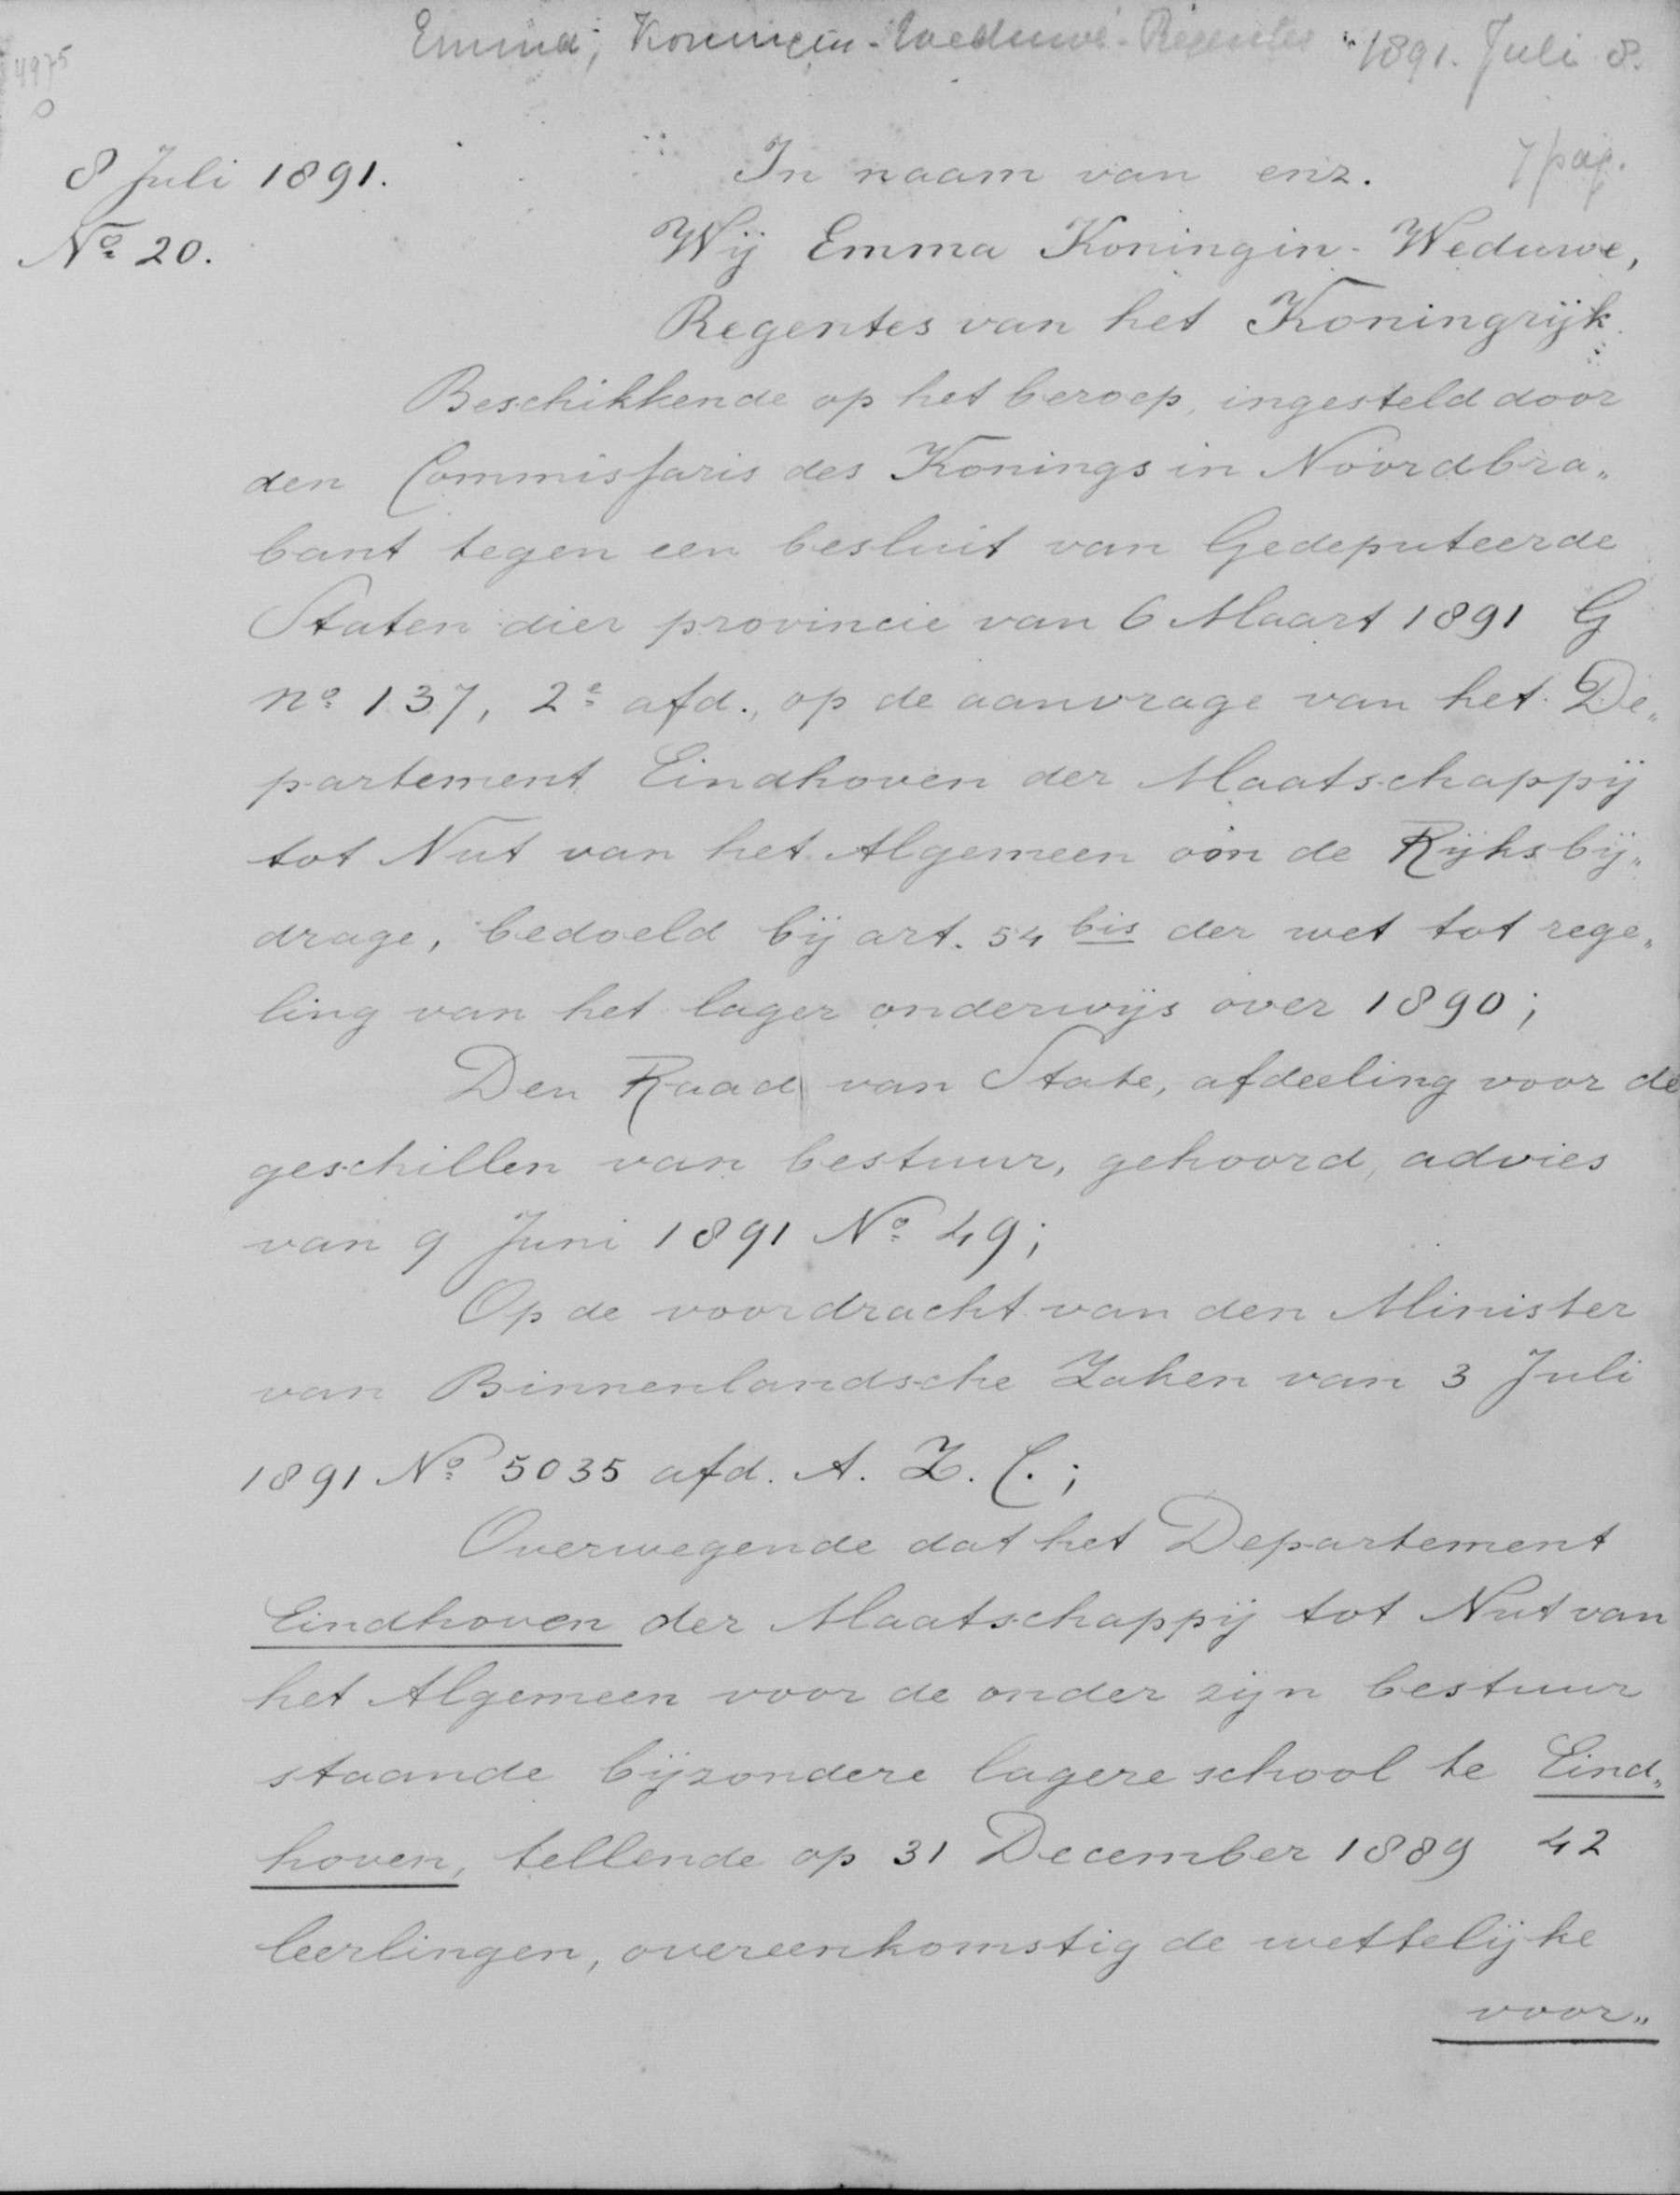 Emma, Koningin-Weduwe-Regentes 1891. Juli 8.
4975
0
7 pag.
8 Juli 1891.
Nº 20.
In naam van enz.
Wij Emma Koningin-Weduwe,
Regentes van het Koningrijk.
Beschikkende op het beroep, ingesteld door
den Commissaris des Konings in Noordbra„
bant tegen een besluit van Gedeputeerde
Staten dier provincie van 6 Maart 1891 G
nº 137, 2e afd., op de aanvrage van het De„
partement Eindhoven der Maatschappij
tot Nut van het Algemeen om de Rijksbij„
drage, bedoeld bij art. 54 bis der wet tot rege„
ling van het lager onderwijs over 1890;
Den Raad van State, afdeeling voor de
geschillen van bestuur, gehoord, advies
van 9 Juni 1891 Nº 49;
Op de voordracht van den Minister
van Binnenlandsche Zaken van 3 Juli
1891 Nº 5035 afd. A. Z. C.;
Overwegende dat het Departement
Eindhoven der Maatschappij tot Nut van
het Algemeen voor de onder zijn bestuur
staande bijzondere lagere school te Eind„
hoven, tellende op 31 December 1889 42
leerlingen, overeenkomstig de wettelijke
voor„